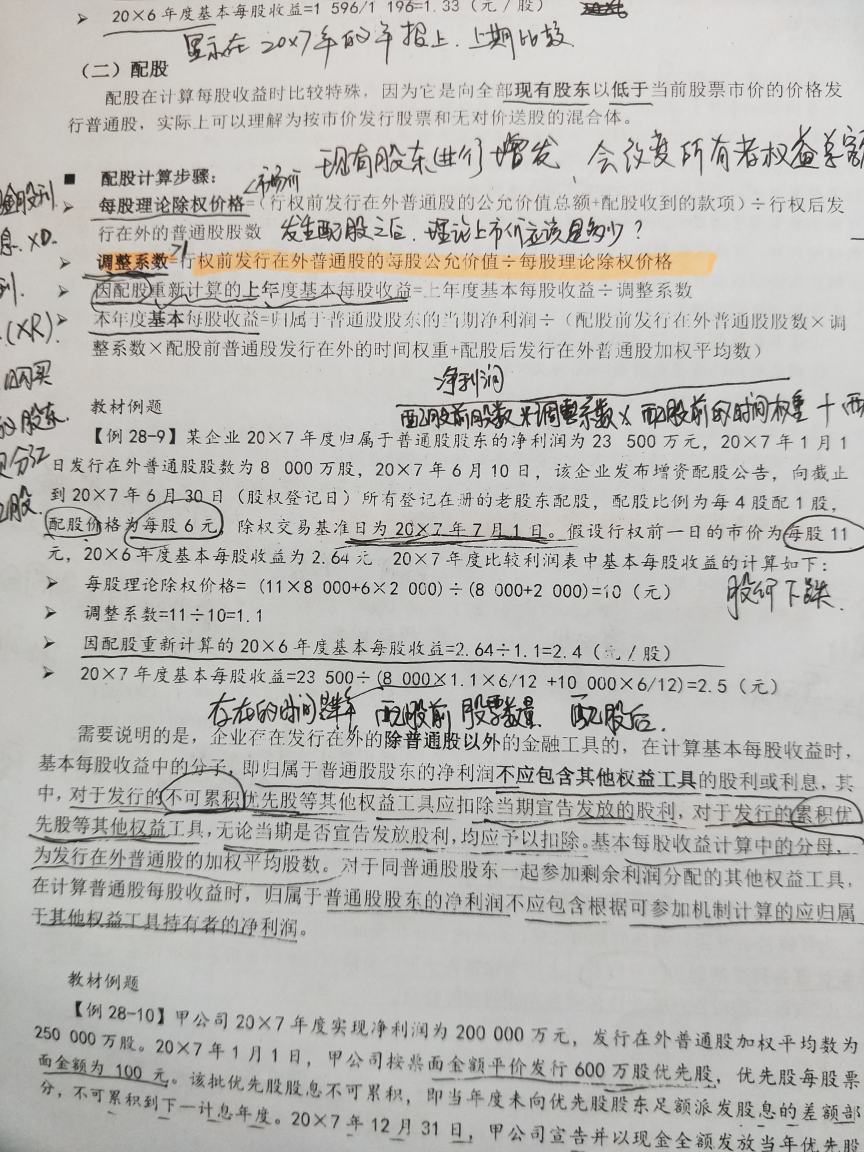 ➢ 20×6年度基本每股收益=1 596/1 196=1.33（元/股）
显示在20×7年的年报上.上期比较
（二）配股
配股在计算每股收益时比较特殊，因为它是向全部现有股东以低于当前股票市价的价格发
行普通股，实际上可以理解为按市价发行股票和无对价送股的混合体。
现有股东进行增发、会改变所有者权益总额
■ 配股计算步骤：
市场价
➢ 每股理论除权价格=（行权前发行在外普通股的公允价值总额+配股收到的款项）÷行权后发
行在外的普通股股数 发生配股之后.理论上市价应该是多少？
>1
➢ 调整系数=行权前发行在外普通股的每股公允价值÷每股理论除权价格
➢ 因配股重新计算的上年度基本每股收益=上年度基本每股收益÷调整系数
➢ 本年度基本每股收益=归属于普通股股东的当期净利润÷（配股前发行在外普通股股数×调
整系数×配股前普通股发行在外的时间权重+配股后发行在外普通股加权平均数）
XD.
(XR).
股东.
净利润
教材例题
配股前股数×调整系数×配股前的时间权重+
【例28-9】某企业20×7年度归属于普通股股东的净利润为23 500万元，20×7年1月1
日发行在外普通股股数为8 000万股，20×7年6月10日，该企业发布增资配股公告，向截止
到20×7年6月30日（股权登记日）所有登记在册的老股东配股，配股比例为每4股配1股，
配股价格为每股6元，除权交易基准日为20×7年7月1日。假设行权前一日的市价为每股11
元，20×6年度基本每股收益为2.64元 20×7年度比较利润表中基本每股收益的计算如下：
➢ 每股理论除权价格=（11×8 000+6×2 000)÷(8 000+2 000)=10（元） 股价下跌.
➢ 调整系数=11÷10=1.1
➢ 因配股重新计算的20×6年度基本每股收益=2.64÷1.1=2.4（元/股）
➢ 20×7年度基本每股收益=23 500÷(8 000×1.1×6/12 +10 000×6/12)=2.5（元）
存在的时间 配股前 股票数量 配股后.
需要说明的是，企业存在发行在外的除普通股以外的金融工具的，在计算基本每股收益时，
基本每股收益中的分子，即归属于普通股股东的净利润不应包含其他权益工具的股利或利息，其
中，对于发行的不可累积优先股等其他权益工具应扣除当期宣告发放的股利，对于发行的累积优
先股等其他权益工具，无论当期是否宣告发放股利，均应予以扣除。基本每股收益计算中的分母，
为发行在外普通股的加权平均股数。对于同普通股股东一起参加剩余利润分配的其他权益工具，
在计算普通股每股收益时，归属于普通股股东的净利润不应包含根据可参加机制计算的应归属
于其他权益工具持有者的净利润。
教材例题
【例28-10】甲公司20×7年度实现净利润为200 000万元，发行在外普通股加权平均数为
250 000万股。20×7年1月1日，甲公司按票面金额平价发行600万股优先股，优先股每股票
面金额为100元。该批优先股股息不可累积，即当年度未向优先股股东足额派发股息的差额部
分，不可累积到下一计息年度。20×7年12月31日，甲公司宣告并以现金全额发放当年优先股